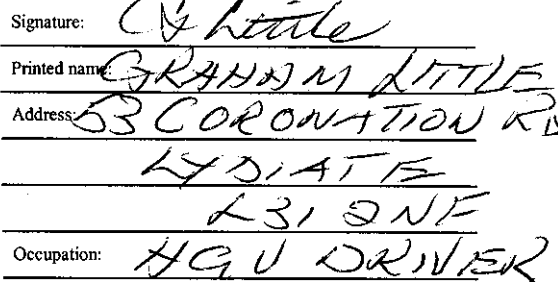 Signature: G Little
Printed name: GRAHAM LITTLE
Address: 53 CORONATION RD
LYDIATE
L31 2NF
Occupation: HGV DRIVER